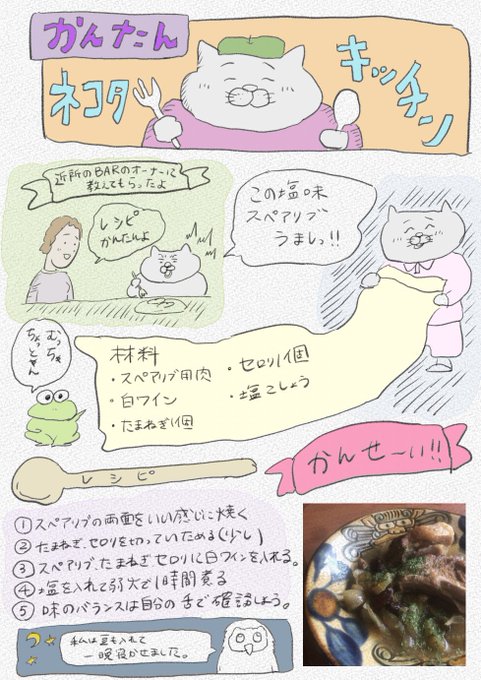 かんたん
ネコタ
キッチン
近所のBARのオーナーに
教えてもらったよ
レシピ
かんたんよ
この塩味
スペアリブ
うましっ!!
むっちゃ
ちょっとやん
材料
・スペアリブ用肉
・白ワイン
・たまねぎ1個
・セロリ1個
・塩こしょう
かんせーい!!
レシピ
① スペアリブの両面をいい感じに焼く
② たまねぎ、セロリを切っていためる(少し)
③ スペアリブ、たまねぎセロリに白ワインを入れる。
④ 塩を入れて弱火で1時間煮る
⑤ 味のバランスは自分の舌で確認しよう。
私は豆も入れて
一晩寝かせました。